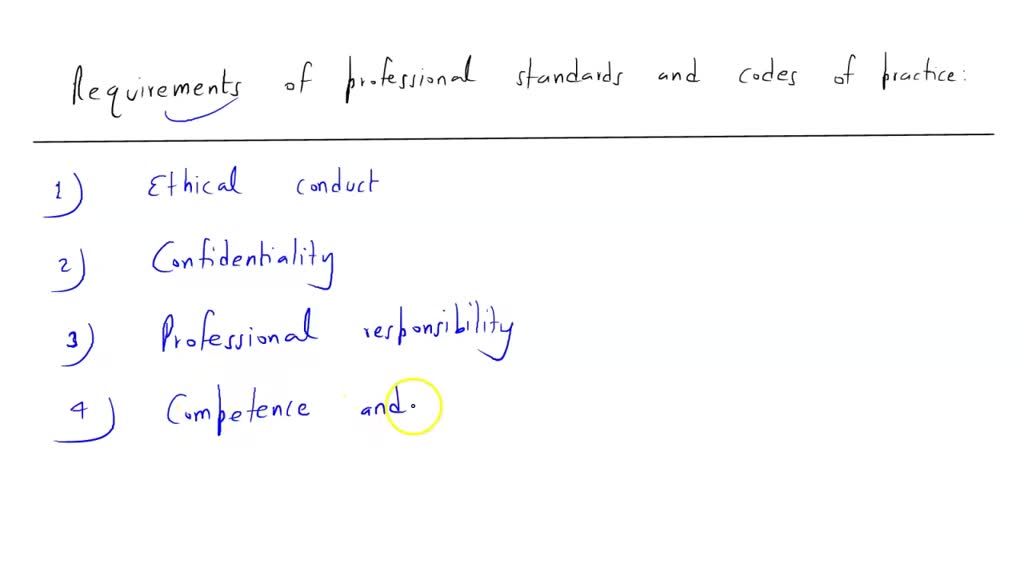 Requirements of professional standards and codes of practice:
1) Ethical conduct
2) Confidentiality
3) Professional responsibility
4) Competence and